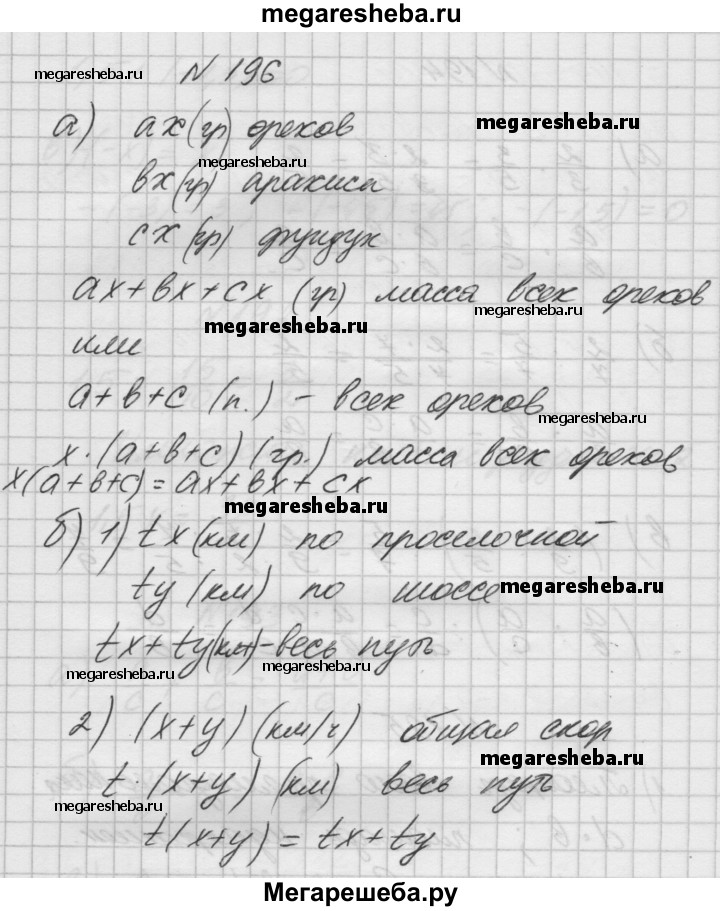 megaresheba.ru
N 196
megaresheba.ru
а) ax (гр) орехов
megaresheba.ru
megaresheba.ru
вx (гр) арахиса
cx (гр) фундук
ax+вx+cx (гр) масса всех орехов
megaresheba.ru
megaresheba.ru
или
a+в+c (п.) - всех орехов
megaresheba.ru
x·(a+в+c) (гр.) масса всех орехов
x(a+в+c)=ax+вx+cx
megaresheba.ru
б) 1) tx (км) по проселочной
ty (км) по шоссе
megaresheba.ru
tx+ty(км)-весь путь
megaresheba.ru
megaresheba.ru
2) (x+y) (км/ч) общая скор
megaresheba.ru
t·(x+y) (км) весь путь
megaresheba.ru
t(x+y)=tx+ty
Мегарешеба.ру